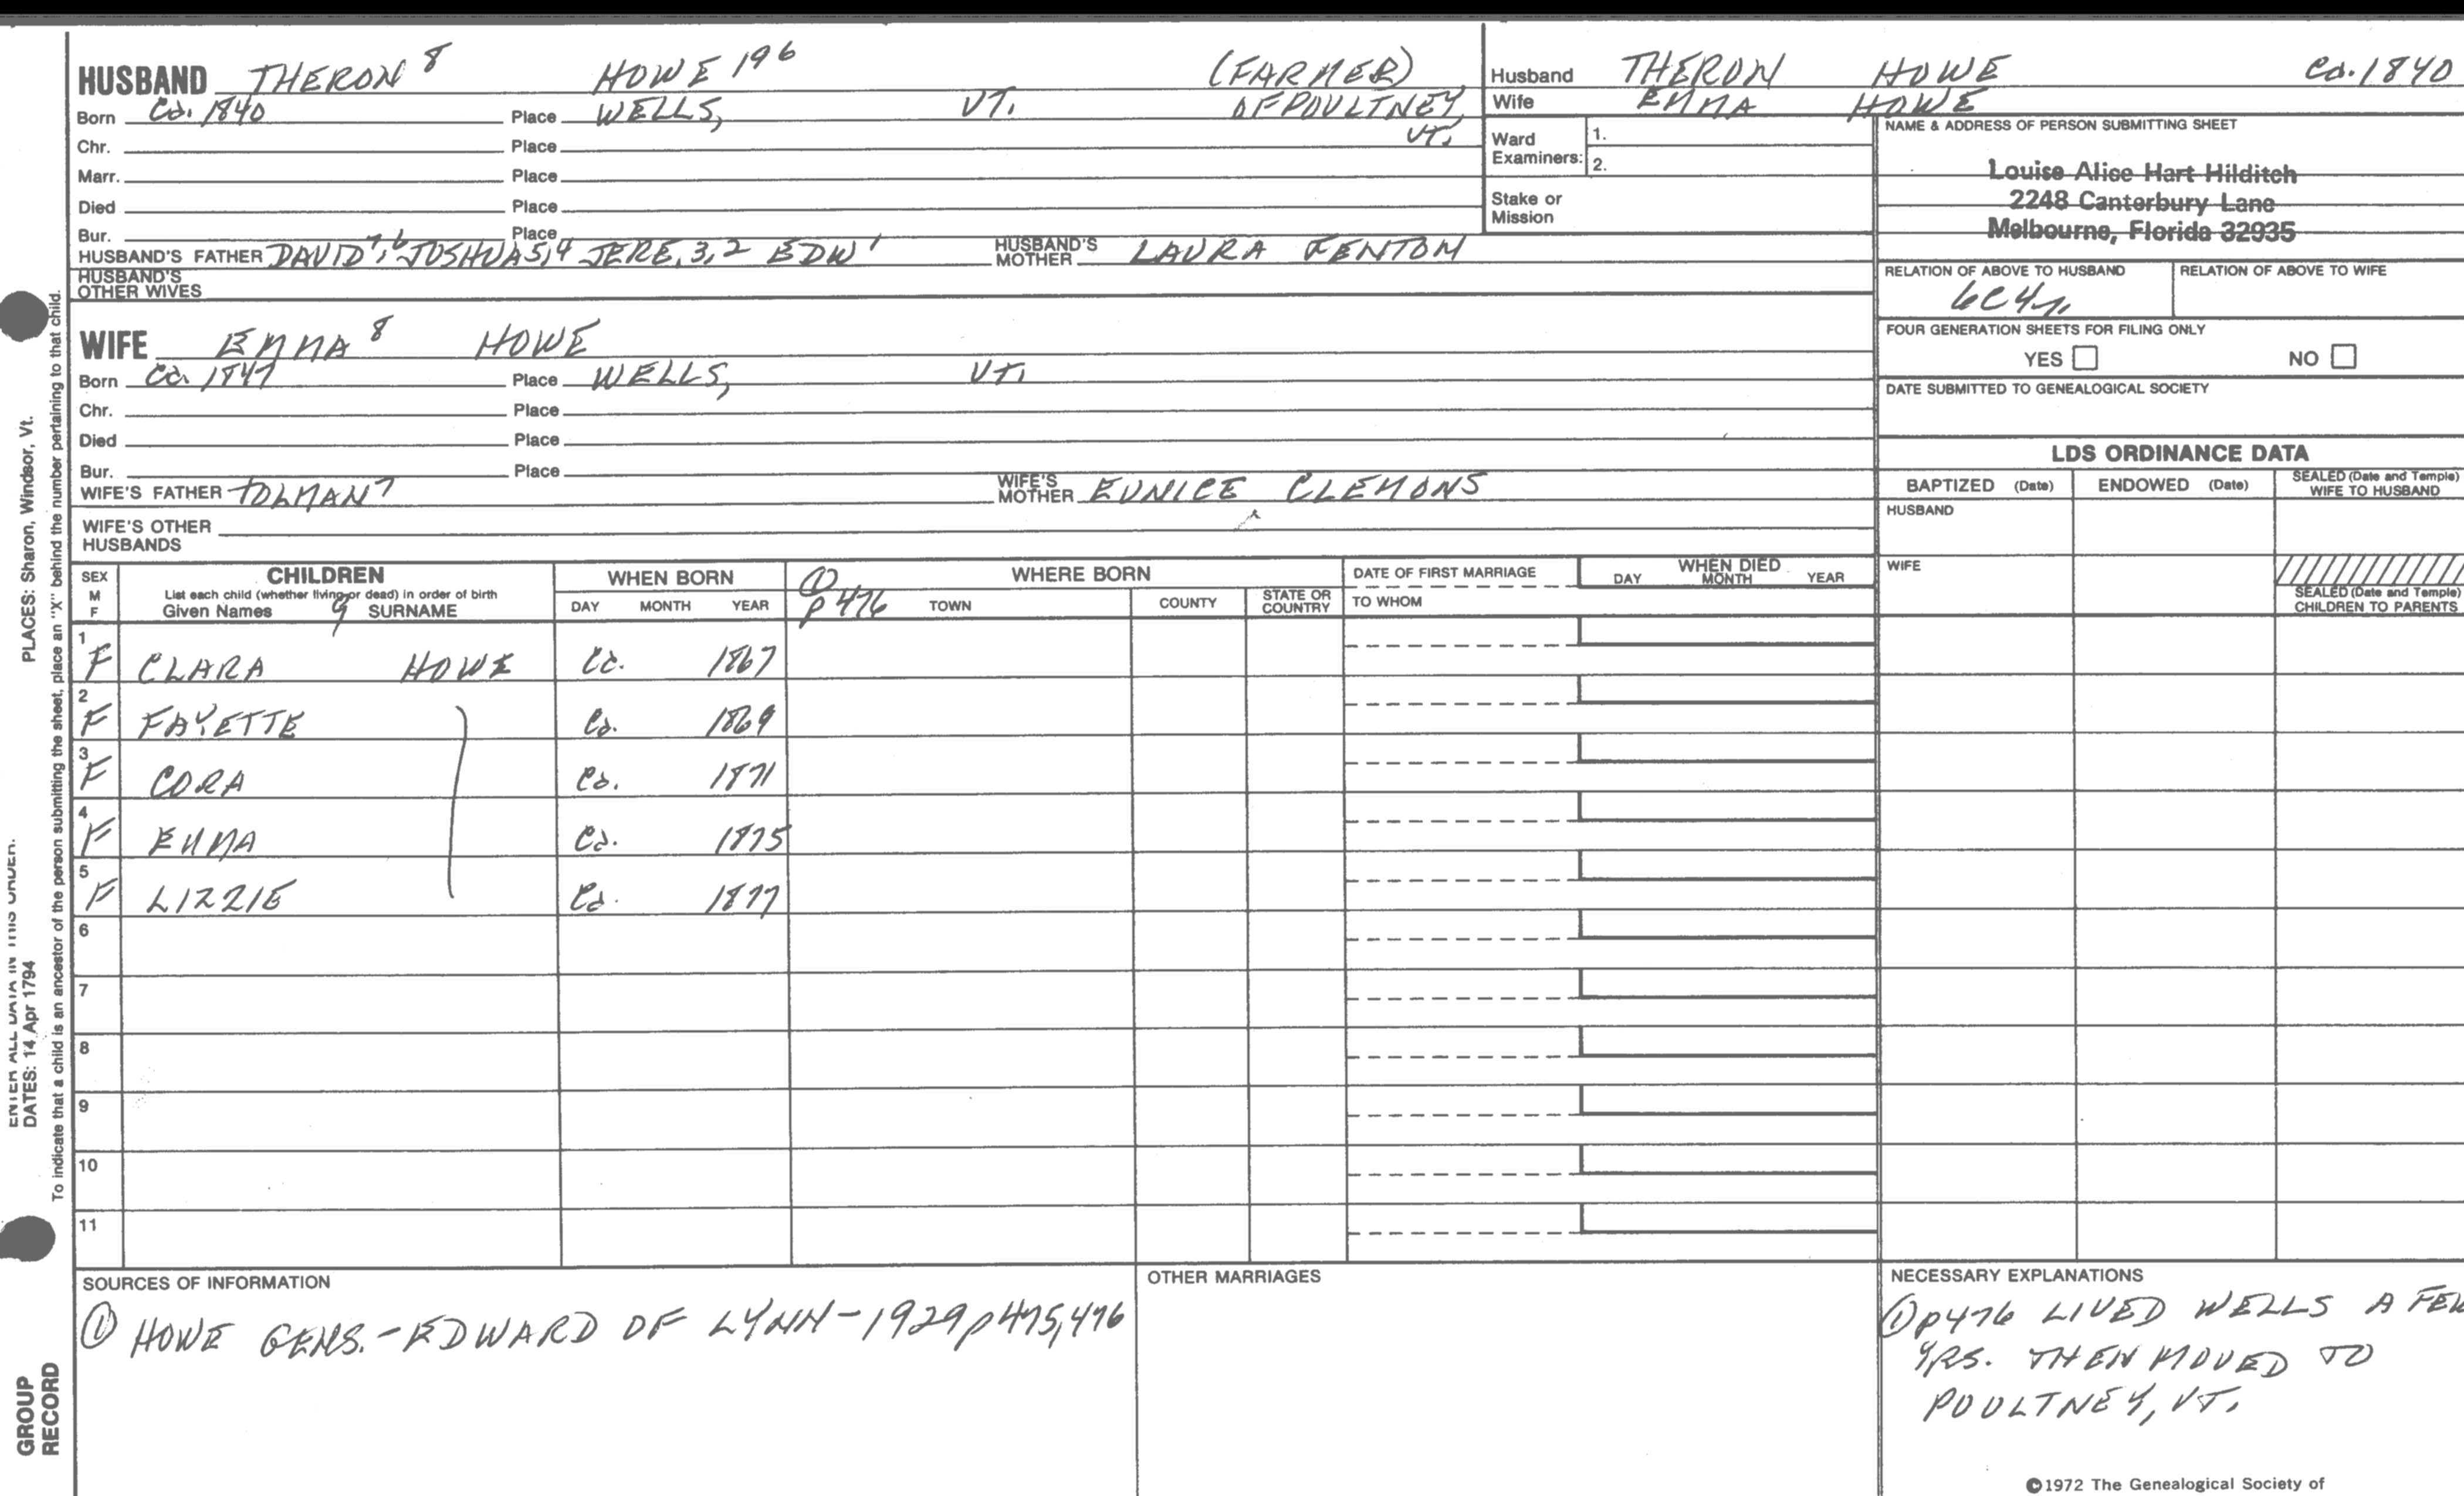 HUSBAND THERON 8 HOWE 196 (FARMER)
Born Ca. 1840 Place WELLS, VT. OF POULTNEY
VT.
Chr. Place
Marr. Place
Died Place
Bur. Place
HUSBAND'S FATHER DAVID 7,6 JOSHUA 5,4 JERE. 3,2 EDW 1 HUSBAND'S MOTHER LAURA FENTON
HUSBAND'S OTHER WIVES
WIFE EMMA 8 HOWE
Born Ca. 1847 Place WELLS, VT.
Chr. Place
Died Place
Bur. Place
WIFE'S FATHER TOLMAN 7 WIFE'S MOTHER EUNICE CLEMONS
WIFE'S OTHER HUSBANDS
Husband THERON HOWE Ca. 1840
Wife EMMA HOWE
Ward Examiners: 1.
2.
Stake or Mission
NAME & ADDRESS OF PERSON SUBMITTING SHEET
Louise Alice Hart Hilditch
2248 Canterbury Lane
Melbourne, Florida 32935
RELATION OF ABOVE TO HUSBAND RELATION OF ABOVE TO WIFE
FOUR GENERATION SHEETS FOR FILING ONLY
YES NO
DATE SUBMITTED TO GENEALOGICAL SOCIETY
LDS ORDINANCE DATA
BAPTIZED (Date) ENDOWED (Date) SEALED (Date and Temple) WIFE TO HUSBAND
HUSBAND
WIFE
SEALED (Date and Temple) CHILDREN TO PARENTS
SEX M F
CHILDREN
List each child (whether living or dead) in order of birth
Given Names 9 SURNAME
WHEN BORN
DAY MONTH YEAR
① p 476
WHERE BORN
TOWN COUNTY STATE OR COUNTRY
DATE OF FIRST MARRIAGE
TO WHOM
WHEN DIED
DAY MONTH YEAR
1 F CLARA HOWE Ca. 1867
2 F FAYETTE Ca. 1869
3 F CORA Ca. 1871
4 F EMMA Ca. 1875
5 F LIZZIE Ca. 1877
6
7
8
9
10
11
SOURCES OF INFORMATION
① HOWE GENS. - EDWARD OF LYNN - 1929 p 475, 476
OTHER MARRIAGES
NECESSARY EXPLANATIONS
① p 476 LIVED WELLS A FEW
YRS. THEN MOVED TO
POULTNEY, VT.
©1972 The Genealogical Society of
PLACES: Sharon, Windsor, Vt.
ENTER ALL DATA IN THIS ORDER:
DATES: 14 Apr 1794
To indicate that a child is an ancestor of the person submitting the sheet, place an "X" behind the number pertaining to that child.
GROUP
RECORD